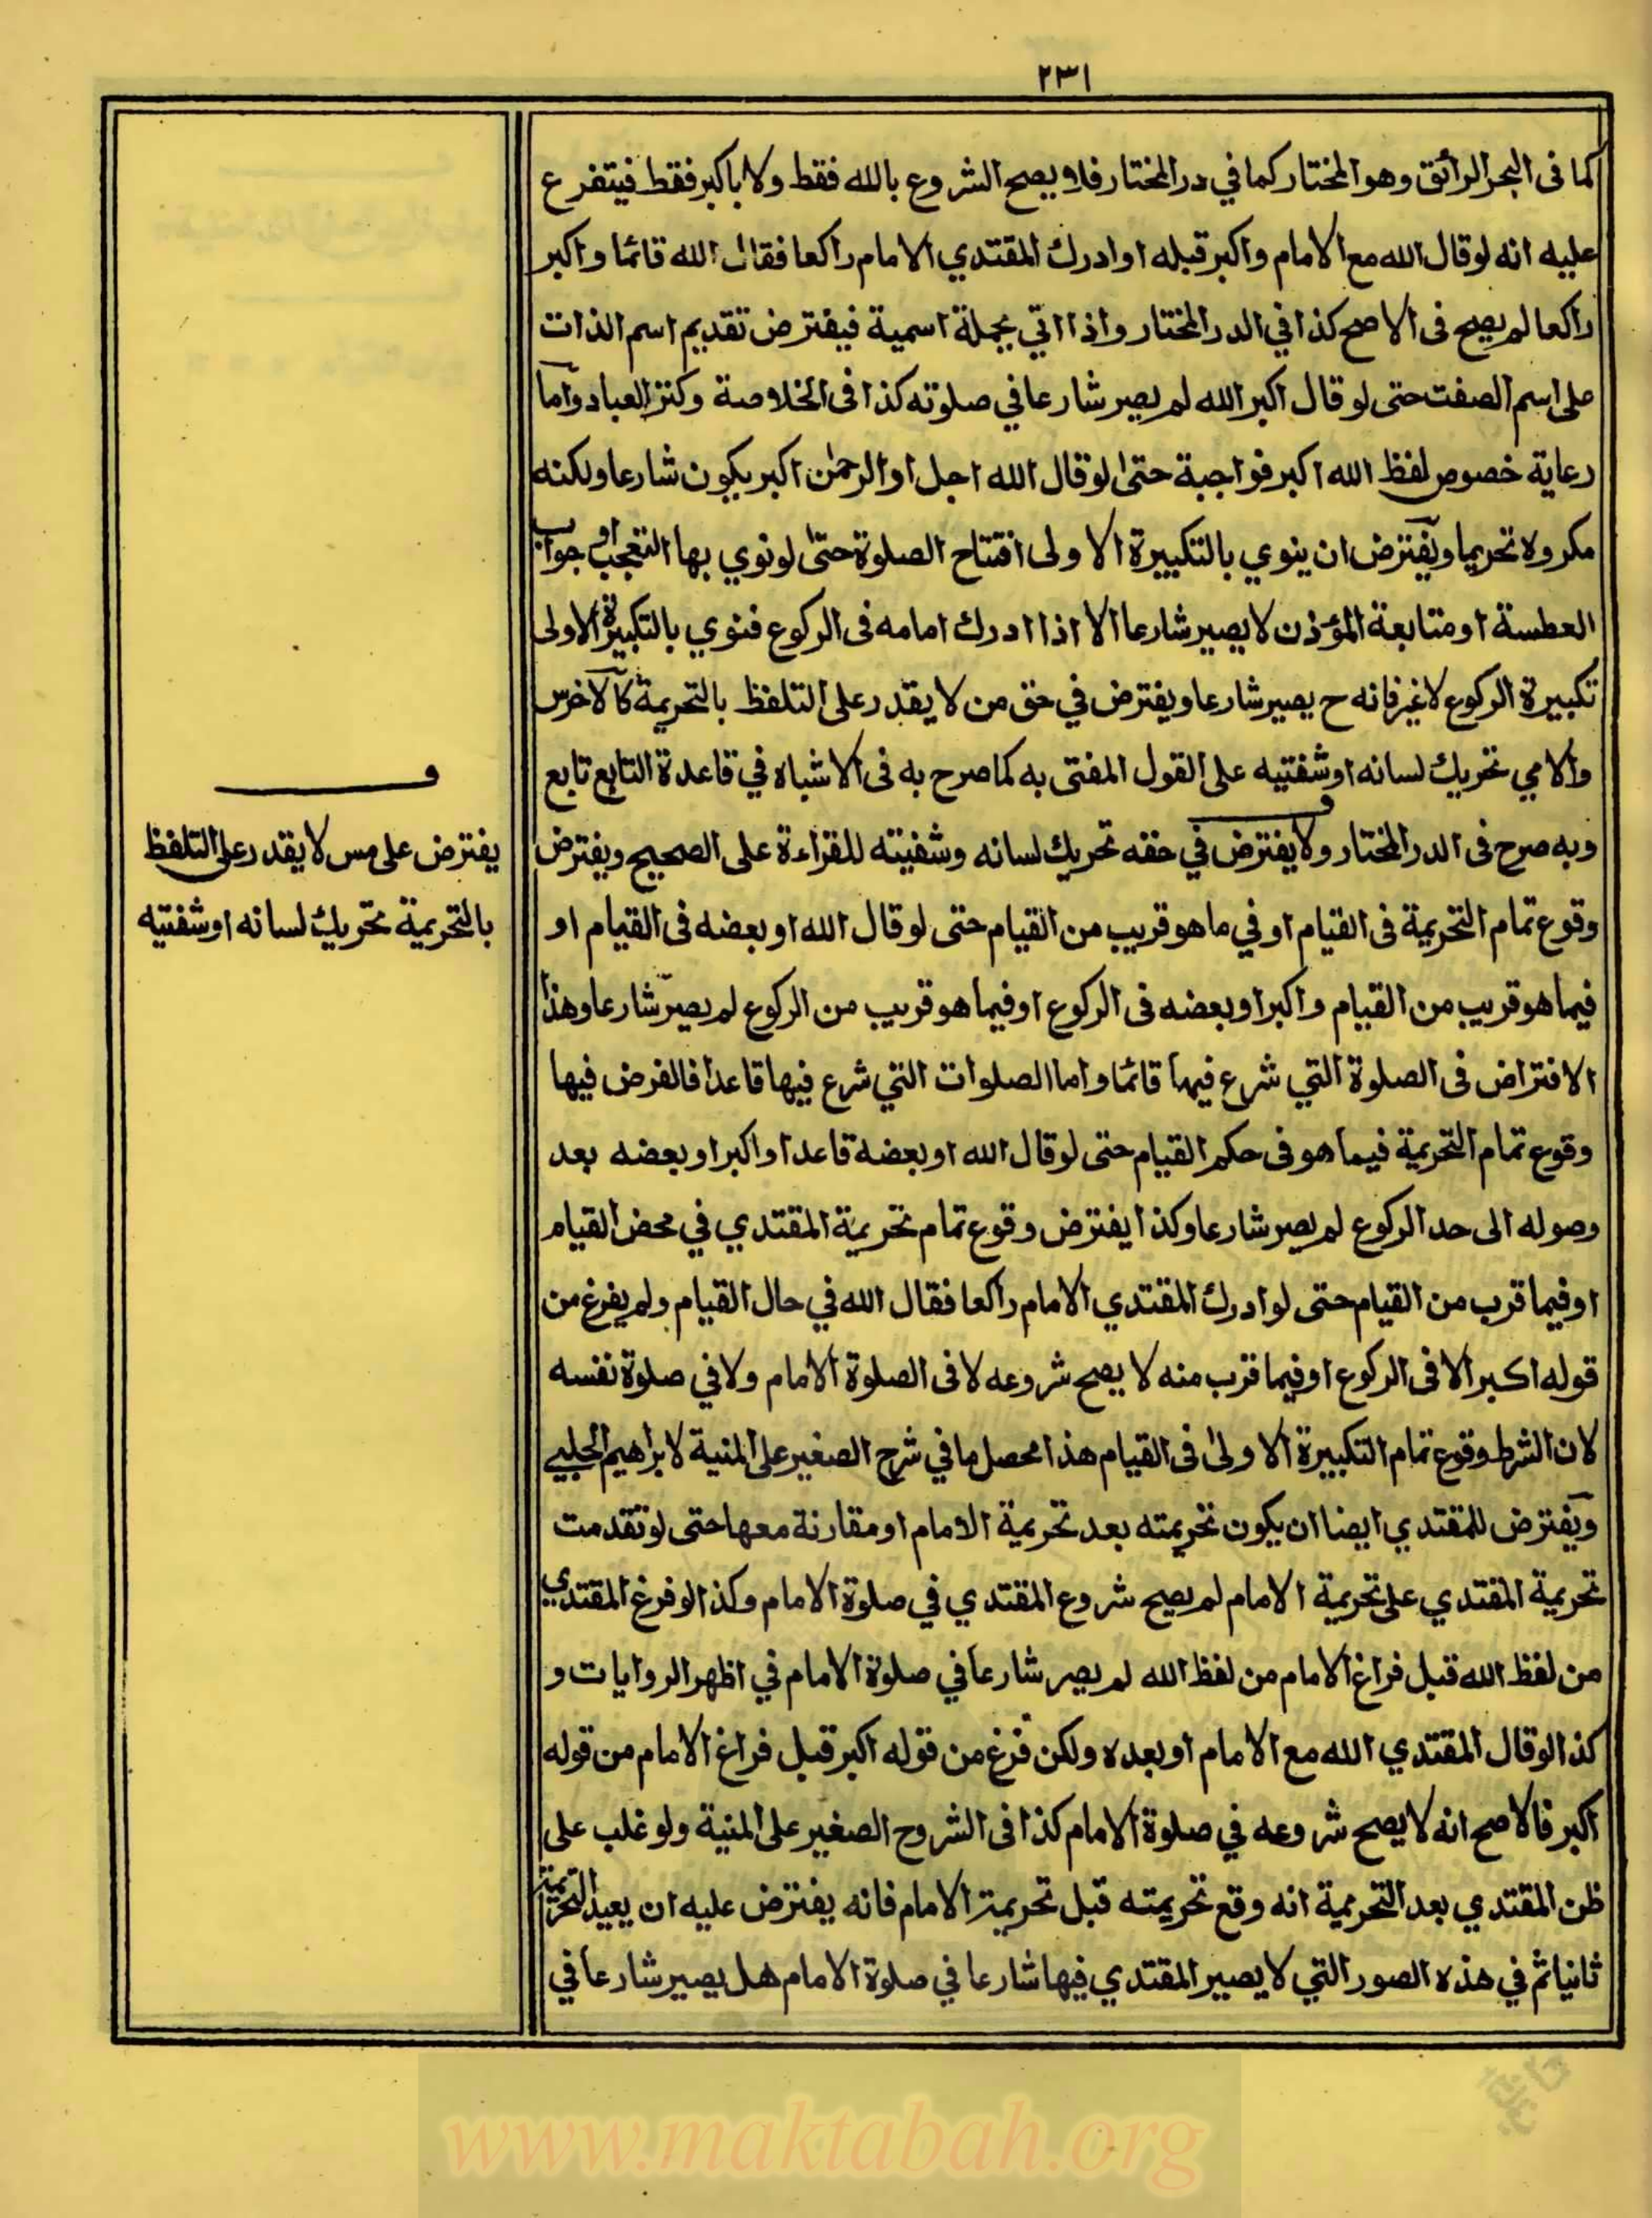 ٢٣١
كما فى البحر الرائق وهو المختار كما في در المختار فلا يصح الشروع بالله فقط ولا باكبر فقط فيتفرع
عليه انه لو قال الله مع الامام واكبر قبله او ادرك المقتدي الامام راكعا فقال الله قائما واكبر
راكعا لم يصح فى الاصح كذا في الدر المختار واذا اتي بجملة اسمية فيفترض تقديم اسم الذات
على اسم الصفت حتى لو قال اكبر الله لم يصر شارعا في صلوته كذا فى الخلاصة وكنز العباد واما
رعاية خصوص لفظ الله اكبر فواجبة حتى لو قال الله اجل او الرحمن اكبر يكون شارعا ولكنه
مكروه تحريما ويفترض ان ينوي بالتكبيرة الاولى افتتاح الصلوة حتى لو نوي بها التعجب او جواب
العطسة او متابعة المؤذن لا يصير شارعا الا اذا ادرك امامه فى الركوع فنوي بالتكبيرة الاولى
تكبيرة الركوع لا غير فانه ح يصير شارعا ويفترض في حق من لا يقدر على التلفظ بالتحريمة كالاخرس
والامي تحريك لسانه او شفتيه على القول المفتى به كما صرح به فى الاشباه في قاعدة التابع تابع
وبه صرح فى الدر المختار ولا يفترض في حقه تحريك لسانه وشفيته للقراءة على الصحيح ويفترض
وقوع تمام التحريمة فى القيام او في ما هو قريب من القيام حتى لو قال الله او بعضه فى القيام او
فيما هو قريب من القيام واكبر او بعضه فى الركوع او فيما هو قريب من الركوع لم يصير شارعا وهذا
الافتراض فى الصلوة التي شرع فيها قائما واما الصلوات التي شرع فيها قاعدا فالفرض فيها
وقوع تمام التحريمة فيما هو فى حكم القيام حتى لو قال الله او بعضه قاعدا واكبر او بعضه بعد
وصوله الى حد الركوع لم يصر شارعا وكذا يفترض وقوع تمام تحريمة المقتدي في محض القيام
او فيما قرب من القيام حتى لو ادرك المقتدي الامام راكعا فقال الله في حال القيام ولم يفرغ من
قوله اكبر الا فى الركوع او فيما قرب منه لا يصح شروعه لا فى الصلوة الامام ولا في صلوة نفسه
لان الشرط وقوع تمام التكبيرة الاولى فى القيام هذا محصل ما في شرح الصغير على المنية لابراهيم الحلبي
ويفترض للمقتدي ايضا ان يكون تحريمته بعد تحريمة الامام او مقارنة معها حتى لو تقدمت
تحريمة المقتدي على تحريمة الامام لم يصح شروع المقتدي في صلوة الامام وكذا لو فرغ المقتدي
من لفظ الله قبل فراغ الامام من لفظ الله لم يصر شارعا في صلوة الامام في اظهر الروايات و
كذا لو قال المقتدي الله مع الامام او بعده ولكن فرغ من قوله اكبر قبل فراغ الامام من قوله
اكبر فالاصح انه لا يصح شروعه في صلوة الامام كذا فى الشروح الصغير على المنية ولو غلب على
ظن المقتدي بعد التحريمية انه وقع تحريمته قبل تحريمة الامام فانه يفترض عليه ان يعيد التحريمة
ثانيا ثم في هذه الصور التي لا يصير المقتدي فيها شارعا في صلوة الامام هل يصير شارعا في
ف
يفترض على من لا يقدر على التلفظ
بالتحريمة تحريك لسانه او شفتيه
www.maktabah.org